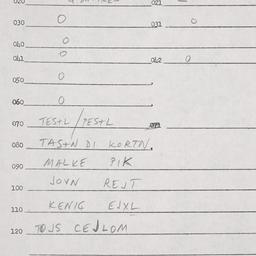 020 021
030 O 031 O
040 O
041 O 042 O
050 O
060 O
070 TESTL / PESTL 071
080 TASTN DI KORTN.
090 MALKE PIK
100 JOVN REJT
110 KENIG EJXL
120 TOJS CEJLOM